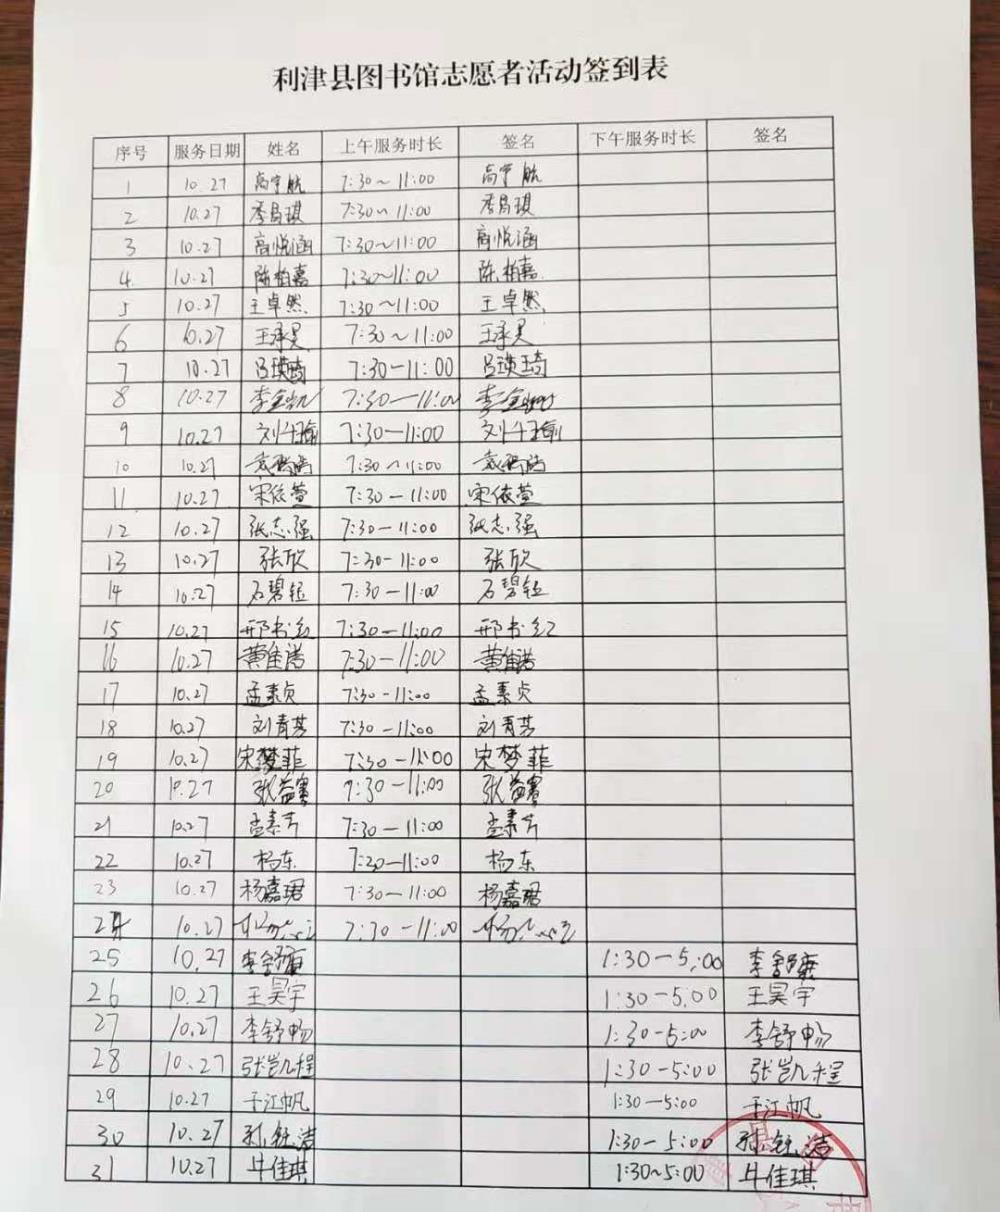 利津县图书馆志愿者活动签到表
序号 服务日期 姓名 上午服务时长 签名 下午服务时长 签名
1 10.27 高宇航 7:30~11:00 高宇航
2 10.27 季昌琪 7:30~11:00 季昌琪
3 10.27 高悦涵 7:30~11:00 高悦涵
4 10.27 陈柏嘉 7:30~11:00 陈柏嘉
5 10.27 王卓然 7:30~11:00 王卓然
6 10.27 王承昊 7:30~11:00 王承昊
7 10.27 吕瑛琦 7:30-11:00 吕瑛琦
8 10.27 李金 7:30-11:00 李金
9 10.27 刘 7:30-11:00 刘
10 10.27 7:30~11:00
11 10.27 宋依萱 7:30-11:00 宋依萱
12 10.27 张志强 7:30-11:00 张志强
13 10.27 张欣 7:30-11:00 张欣
14 10.27 石碧钰 7:30-11:00 石碧钰
15 10.27 邢书红 7:30-11:00 邢书红
16 10.27 黄佳诺 7:30-11:00 黄佳诺
17 10.27 孟素贞 7:30-11:00 孟素贞
18 10.27 刘青芳 7:30-11:00 刘青芳
19 10.27 宋梦菲 7:30-11:00 宋梦菲
20 10.27 张益 9:30-11:00 张益
21 10.27 孟素芹 7:30-11:00 孟素芹
22 10.27 杨东 7:30-11:00 杨东
23 10.27 杨嘉珺 7:30-11:00 杨嘉珺
24 10.27 杨 7:30-11:00 杨
25 10.27 李舒 1:30-5:00 李舒
26 10.27 王昊宇 1:30-5:00 王昊宇
27 10.27 李舒畅 1:30-5:00 李舒畅
28 10.27 张凯程 1:30-5:00 张凯程
29 10.27 于江帆 1:30-5:00 于江帆
30 10.27 孙钰洁 1:30-5:00 孙钰洁
31 10.27 牛佳琪 1:30~5:00 牛佳琪